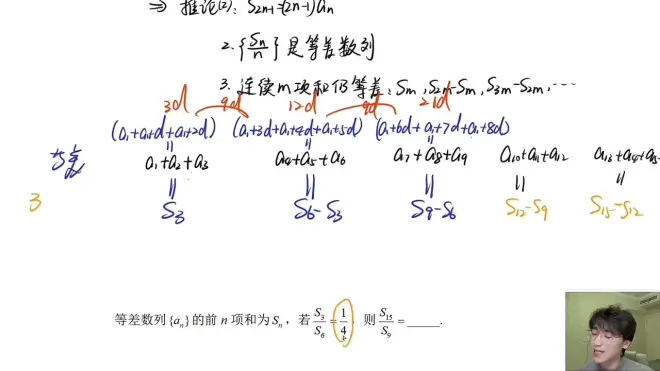 ⇒ 推论(2): S2n-1=(2n-1)an
2. {Sn/n} 是等差数列
3. 连续m项和仍等差: Sm, S2m-Sm, S3m-S2m, ...
3d 9d 12d 9d 21d
(a1+a1+d+a1+2d) (a1+3d+a1+4d+a1+5d) (a1+6d+a1+7d+a1+8d)
等差 a1+a2+a3 a4+a5+a6 a7+a8+a9 a10+a11+a12 a13+a14+a
3 S3 S6-S3 S9-S6 S12-S9 S15-S12
等差数列{an}的前 n 项和为Sn，若 S3/S6 = 1/4 则 S15/S9 = _____.